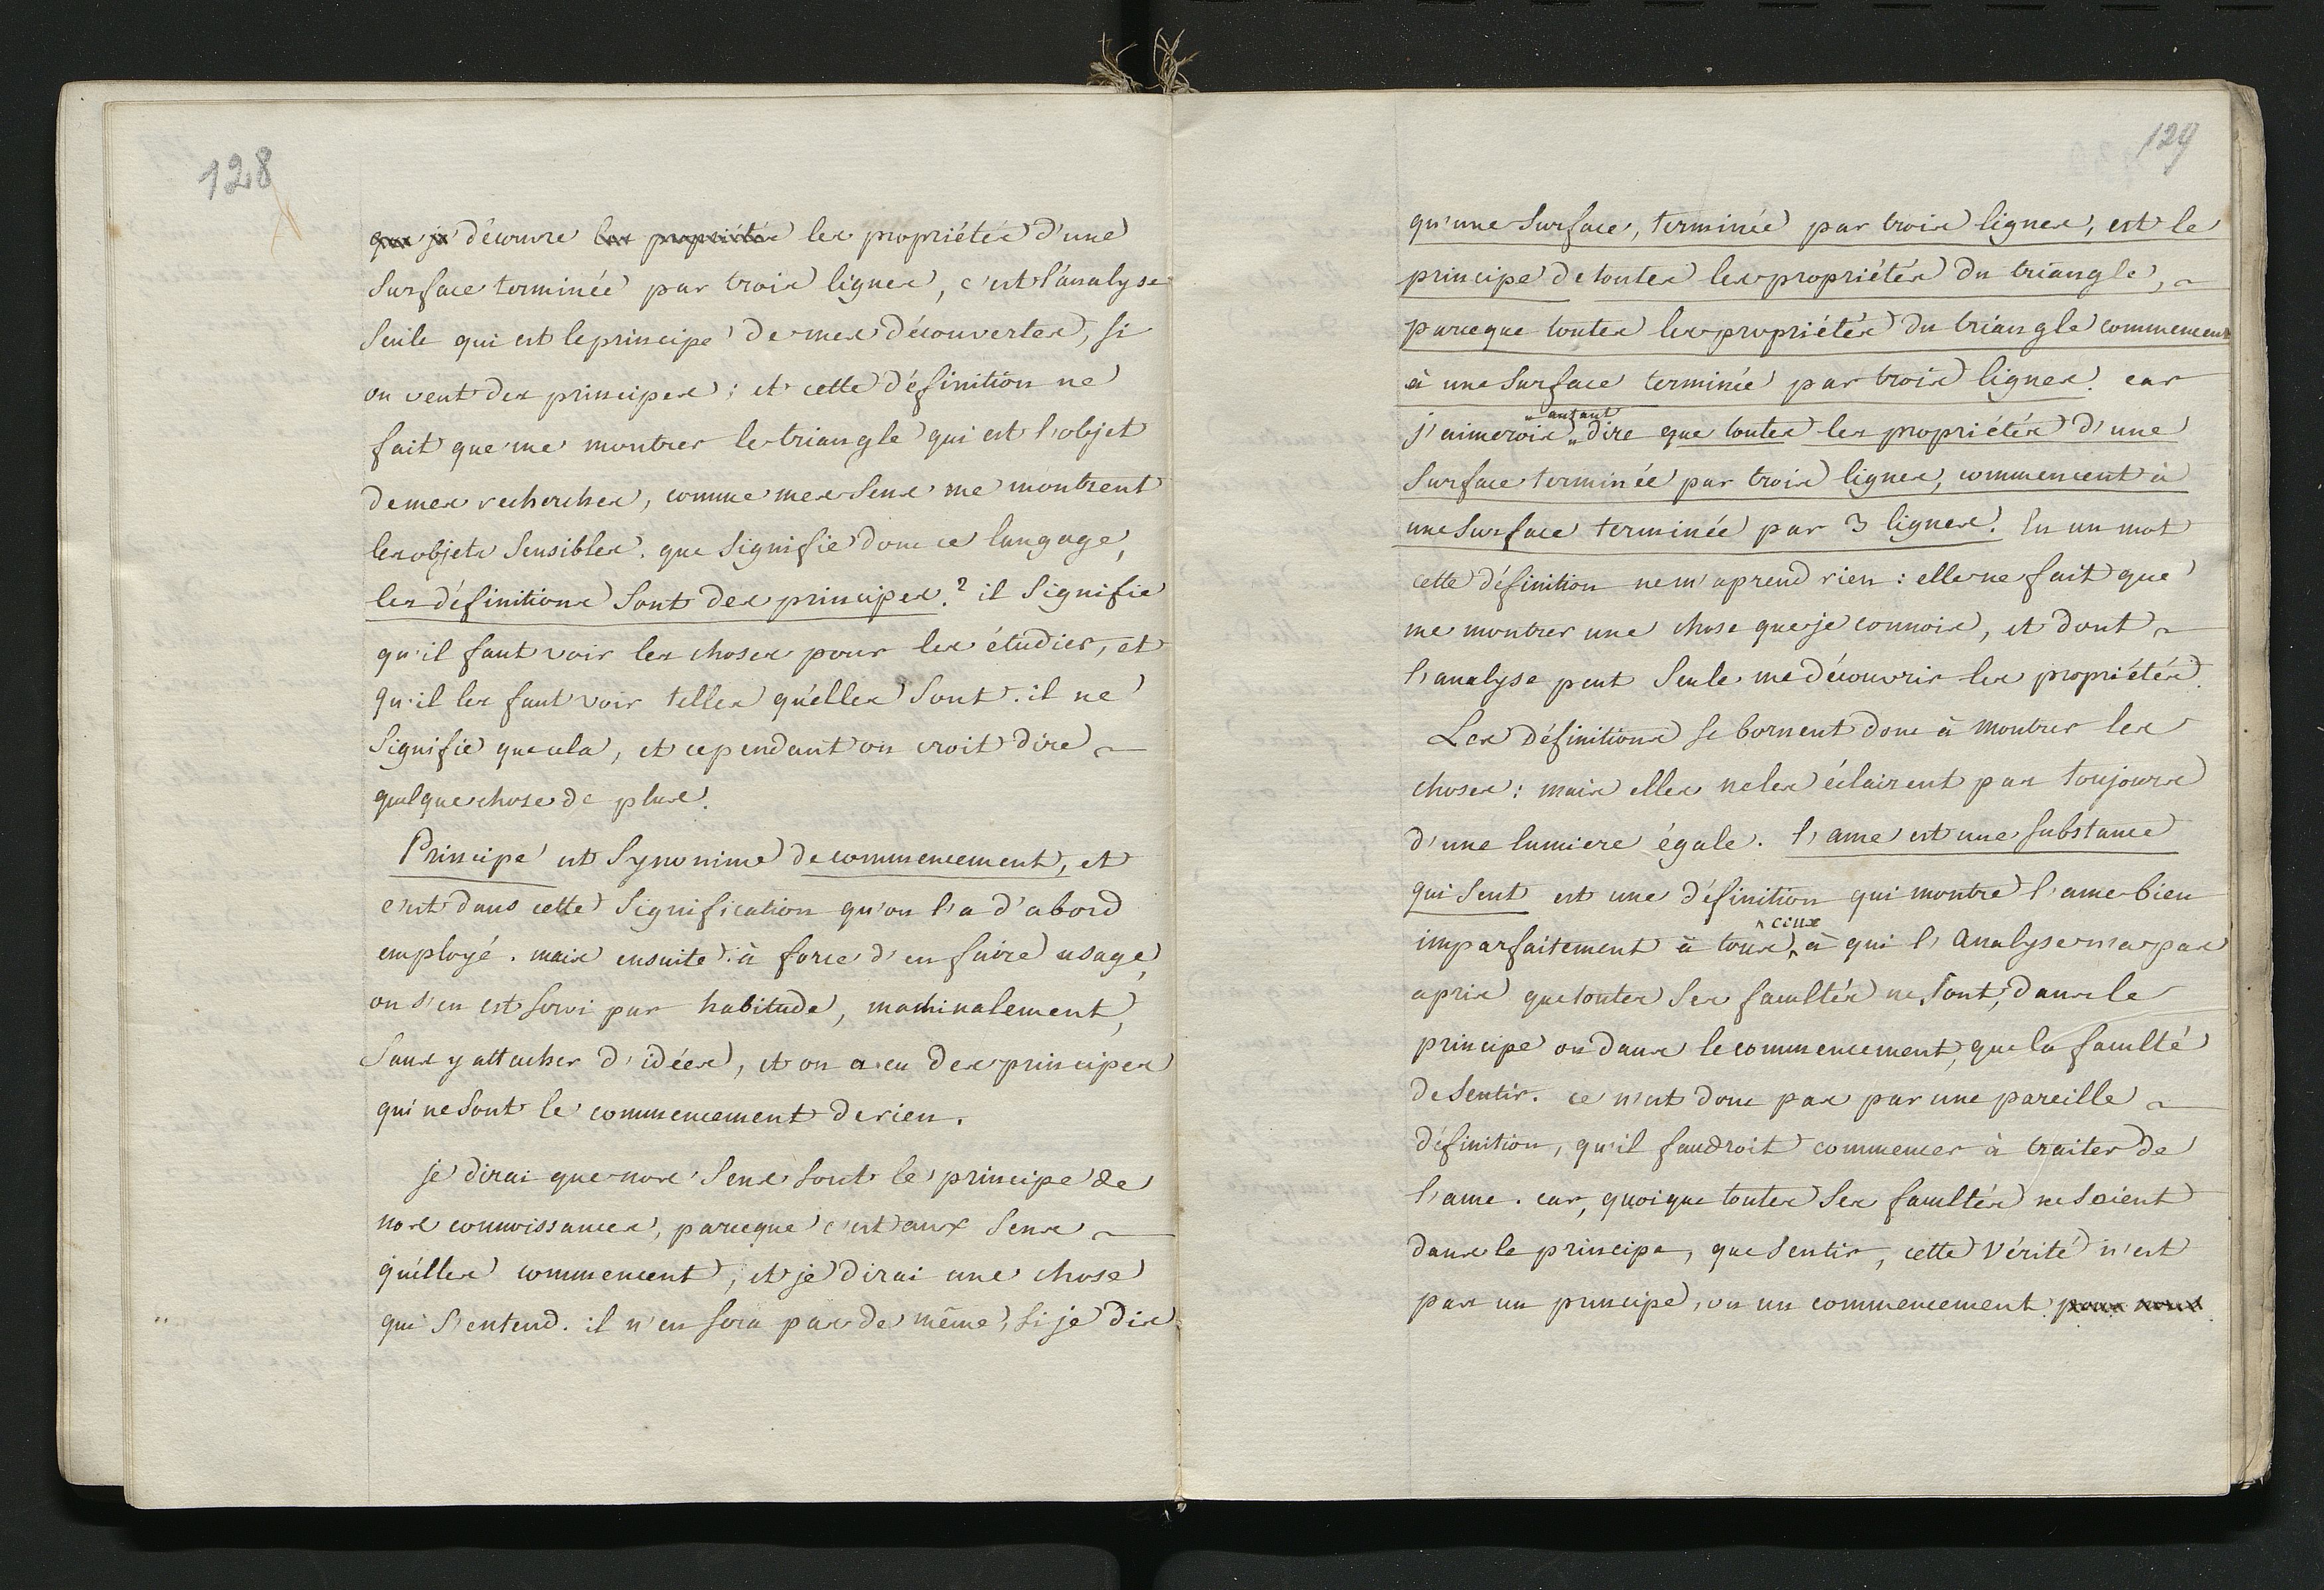 128
que je découvre les propriétés les propriétés d'une
Surface terminée par trois lignes, c'est l'analyse
Seule qui est le principe de mes découvertes, si
on veut des principes ; et cette définition ne
fait que me montrer le triangle qui est l'objet
de mes recherches, comme mes Sens me montrent
les objets Sensibles. que Signifie donc ce langage,
les définitions Sont des principes ? il Signifie
qu'il faut voir les choses pour les étudier, et
qu'il les faut voir telles qu'elles Sont. il ne
Signifie que cela, et cependant on croit dire
quelque chose de plus.
Principe est Synonime de commencement, et
c'est dans cette Signification qu'on l'a d'abord
employé. mais ensuite à force d'en faire usage,
on s'en est servi par habitude, machinalement,
Sans y attacher d'idées, et on a eu des principes
qui ne Sont le commencement de rien.
je dirai que nos Sens Sont le principe de
nos connoissances, parceque c'est aux Sens
qu'elles commencent, et je dirai une chose
qui S'entend. il n'en sera pas de même, Si je dis
129
qu'une Surface, terminée par trois lignes, est le
principe de toutes les propriétés du triangle,
parceque toutes les propriétés du triangle commencent
à une Surface terminée par trois lignes. car
autant
j'aimerois dire que toutes les propriétés d'une
Surface terminée par trois lignes, commencent à
une Surface terminée par 3 lignes. En un mot
cette définition ne m'aprend rien : elle ne fait que
me montrer une chose que je connois, et dont
l'analyse peut Seule me découvrir les propriétés.
Les Définitions se bornent donc à montrer les
choses : mais elles ne les éclairent pas toujours
d'une lumiere égale. l'ame est une substance
qui Sent est une définition qui montre l'ame bien
ceux
imparfaitement à tous, à qui l'Analyse n'a pas
apris que toutes Ses facultés ne Sont, dans le
principe ou dans le commencement, que la faculté
de Sentir. ce n'est donc pas par une pareille
définition, qu'il faudroit commencer à traiter de
l'ame. car, quoique toutes Ses facultés ne Soient
dans le principe, que Sentir, cette Vérité n'est
pas un principe, ou un commencement pour nous